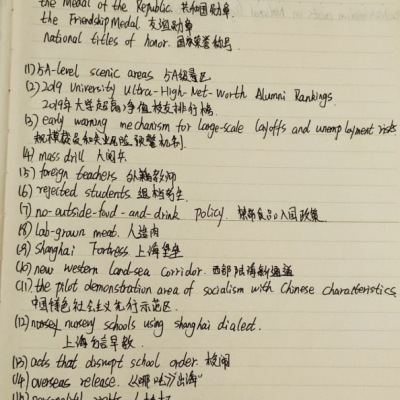 the Medal of the Republic. 共和国勋章.
the Friendship Medal 友谊勋章
national titles of honor. 国家荣誉称号.
(1) 5A-level scenic areas 5A级景区
(2) 2019 University Ultra-High-Net-Worth Alumni Rankings.
2019年大学超高净值校友排行榜.
(3) early warning mechanism for large-scale layoffs and unemployment risks
规模裁员和失业风险预警机制.
(4) mass drill 大阅兵
(5) foreign teachers 外籍教师
(6) rejected students 退档考生.
(7) no-outside-food-and-drink policy. 禁带食品入园政策
(8) lab-grown meat. 人造肉
(9) Shanghai Fortress 上海堡垒
(10) new western land-sea corridor. 西部陆海新通道
(11) the pilot demonstration area of socialism with Chinese characteristics.
中国特色社会主义先行示范区.
(12) nursery schools using shanghai dialect.
上海方言早教.
(13) acts that disrupt school order. 校闹
(14) overseas release. 《哪吒》"出海"